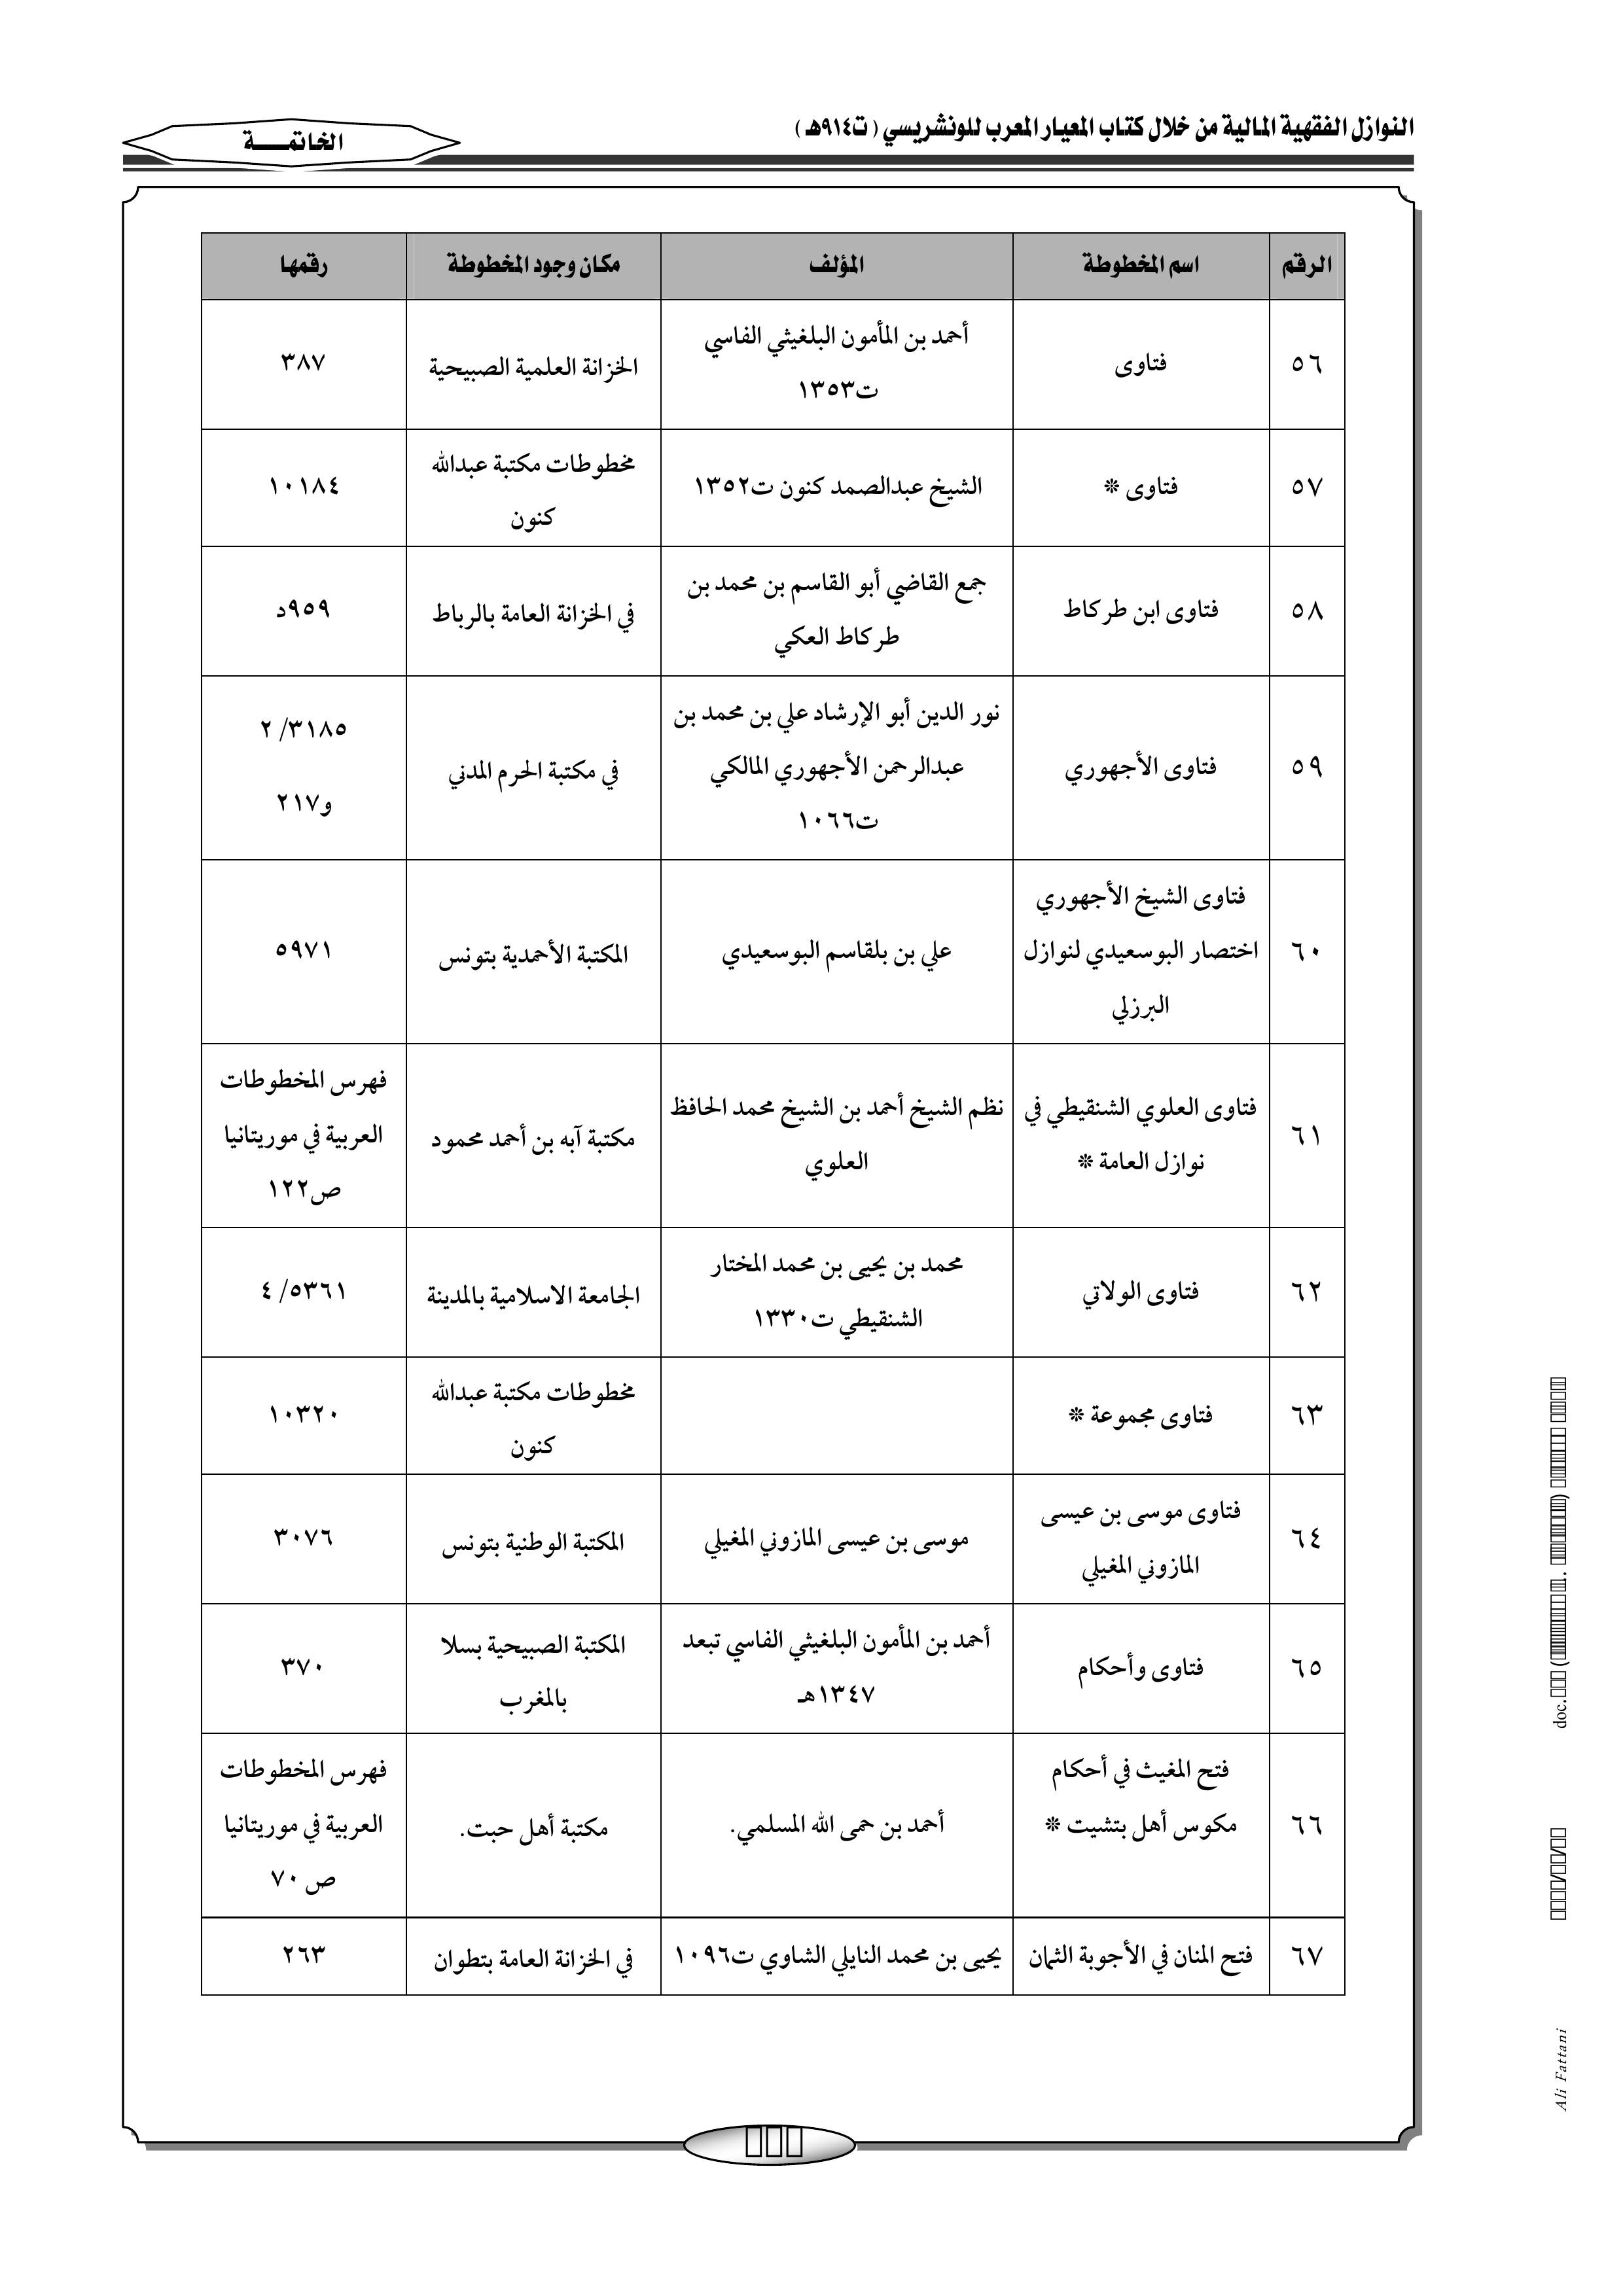 النوازل الفقهية المالية من خلال كتاب المعيار المعرب للونشريسي ( ت٩١٤هـ )
الخاتمـــــة
الرقم اسم المخطوطة المؤلف مكان وجود المخطوطة رقمها
٥٦ فتاوى أحمد بن المأمون البلغيثي الفاسي
ت١٣٥٣ الخزانة العلمية الصبيحية ٣٨٧
٥٧ فتاوى * الشيخ عبدالصمد كنون ت١٣٥٢ مخطوطات مكتبة عبدالله
كنون ١٠١٨٤
٥٨ فتاوى ابن طركاط جمع القاضي أبو القاسم بن محمد بن
طركاط العكي في الخزانة العامة بالرباط ٩٥٩د
٥٩ فتاوى الأجهوري نور الدين أبو الإرشاد علي بن محمد بن
عبدالرحمن الأجهوري المالكي
ت١٠٦٦ في مكتبة الحرم المدني ٣١٨٥/ ٢
و٢١٧
٦٠ فتاوى الشيخ الأجهوري
اختصار البوسعيدي لنوازل
البرزلي علي بن بلقاسم البوسعيدي المكتبة الأحمدية بتونس ٥٩٧١
٦١ فتاوى العلوي الشنقيطي في
نوازل العامة * نظم الشيخ أحمد بن الشيخ محمد الحافظ
العلوي مكتبة آبه بن أحمد محمود فهرس المخطوطات
العربية في موريتانيا
ص١٢٢
٦٢ فتاوى الولاتي محمد بن يحيى بن محمد المختار
الشنقيطي ت١٣٣٠ الجامعة الاسلامية بالمدينة ٥٣٦١/ ٤
٦٣ فتاوى مجموعة * مخطوطات مكتبة عبدالله
كنون ١٠٣٢٠
٦٤ فتاوى موسى بن عيسى
المازوني المغيلي موسى بن عيسى المازوني المغيلي المكتبة الوطنية بتونس ٣٠٧٦
٦٥ فتاوى وأحكام أحمد بن المأمون البلغيثي الفاسي تبعد
١٣٤٧هـ المكتبة الصبيحية بسلا
بالمغرب ٣٧٠
٦٦ فتح المغيث في أحكام
مكوس أهل بتشيت * أحمد بن حمى الله المسلمي. مكتبة أهل حبت. فهرس المخطوطات
العربية في موريتانيا
ص ٧٠
٦٧ فتح المنان في الأجوبة الثمان يحيى بن محمد النايلي الشاوي ت١٠٩٦ في الخزانة العامة بتطوان ٢٦٣
doc.
Ali Fattani